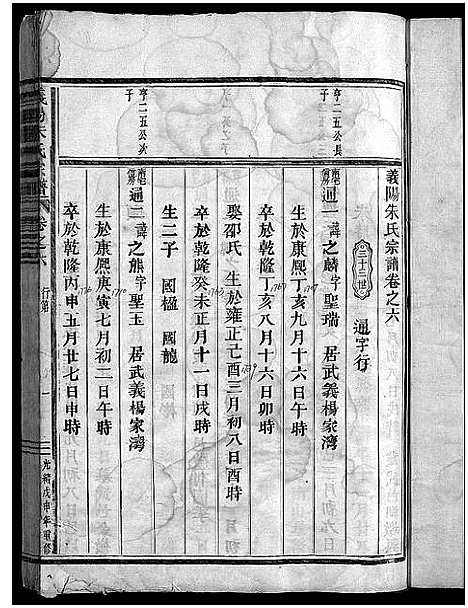 義陽朱氏宗譜卷之六
三十三世 通字行
亨二五公長子
通一 諱之麟字聖瑞 居武義楊家灣
生於康熙丁亥九月十六日午時
1707
卒於乾隆丁亥八月十六日卯時
1767
娶邵氏 生於雍正己酉三月初八日酉時
1729
卒於乾隆癸未正月十一日戌時
1763
生二子 國楹 國龍
亨二五公次子
通二 諱之熊字聖玉 居武義楊家灣
生於康熙庚寅七月初二日午時
1710
卒於乾隆丙申五月廿七日申時
1776
義陽朱氏宗譜 卷之六
行第
一
光緒戊申年重修